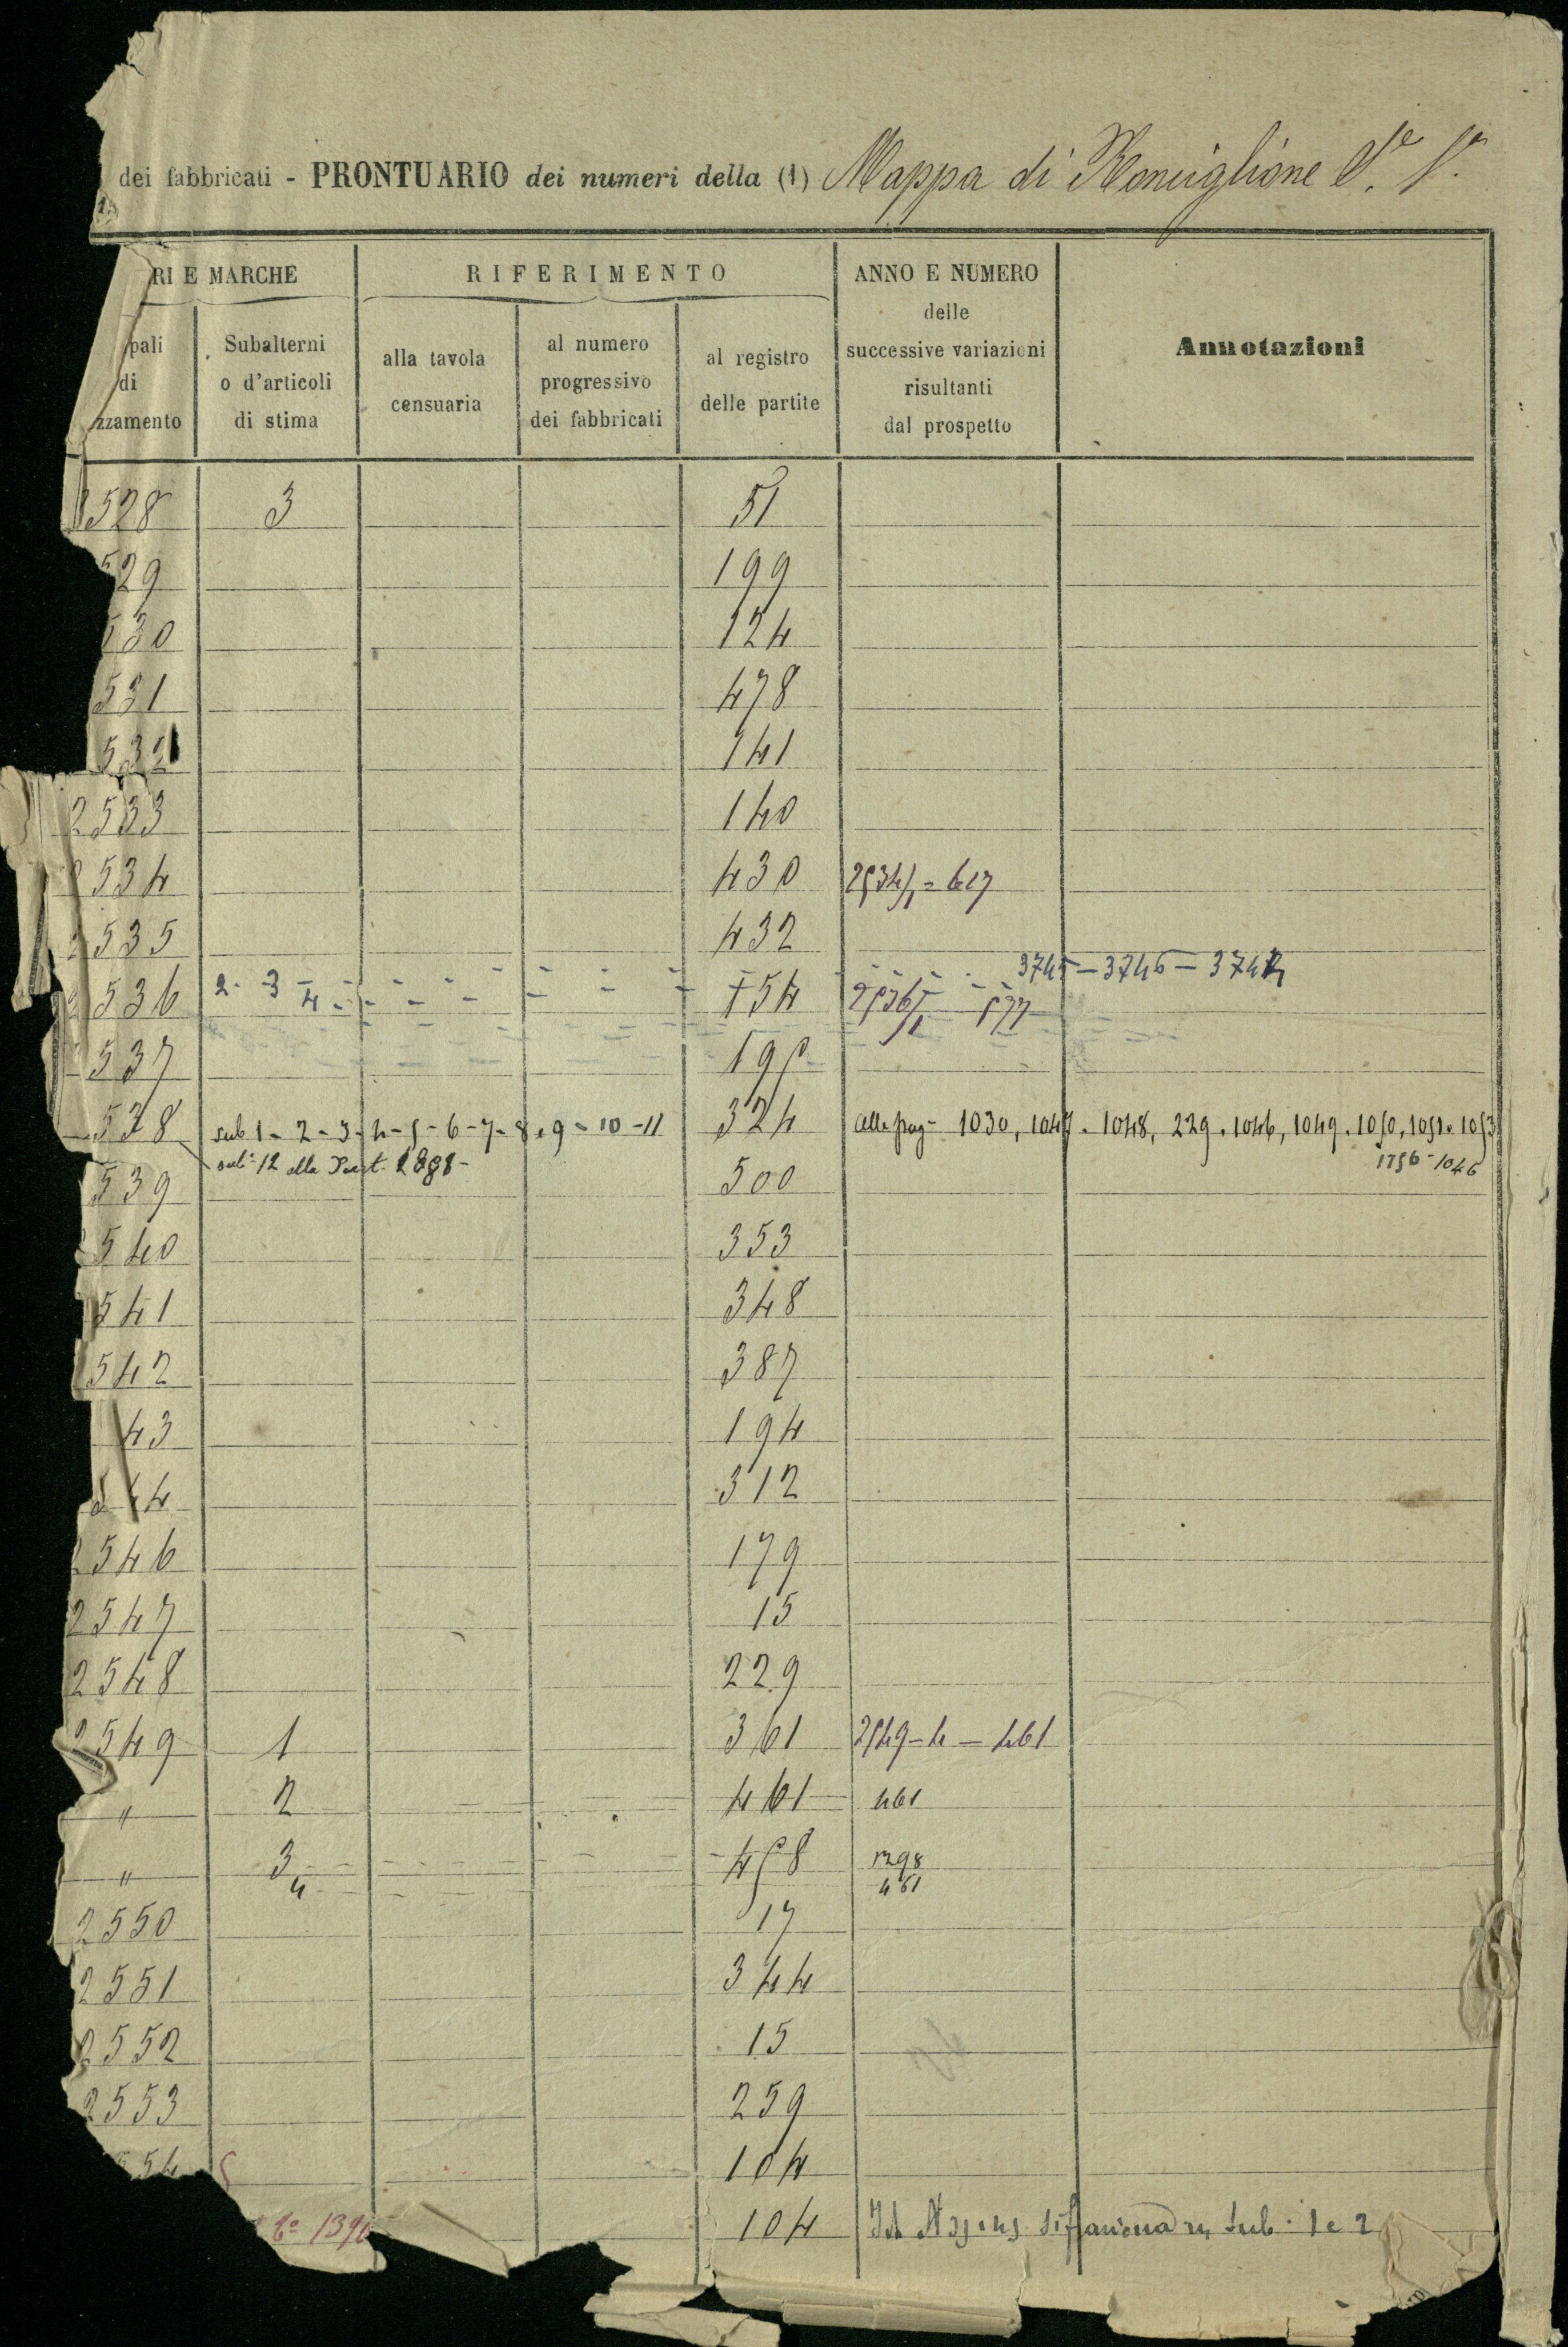 dei fabbricati - PRONTUARIO dei numeri della (1) Mappa di Ronciglione
RI E MARCHE RIFERIMENTO ANNO E NUMERO
delle
successive variazioni
risultanti
dal prospetto
Annotazioni
pali
di
zzamento
Subalterni
o d'articoli
di stima
alla tavola
censuaria
al numero
progressivo
dei fabbricati
al registro
delle partite
528 3 51
29 199
530 124
531 478
532 141
2533 140
2534 430 2534/1 = 617
535 432
3745 - 3746 - 3747
536 2 - 3 - 4 154 2536/1 577
537 195
538 sub 1 - 2 - 3 - 4 - 5 - 6 - 7 - 8 - 9 - 10 - 11 324 alle pag - 1030, 1047 - 1048, 229 - 1046, 1049 - 1050, 1051 - 1053
sub 12 alla Part. 1756 - 1046
539 500
540 353
541 348
542 387
43 194
544 312
2546 179
2547 15
2548 229
2549 1 361 2549 - 4 - 461
" 2 461 461
" 3 458 1298
4 461
2550 17
2551 344
2552 15
2553 259
54 104
104 sub. 1 e 2